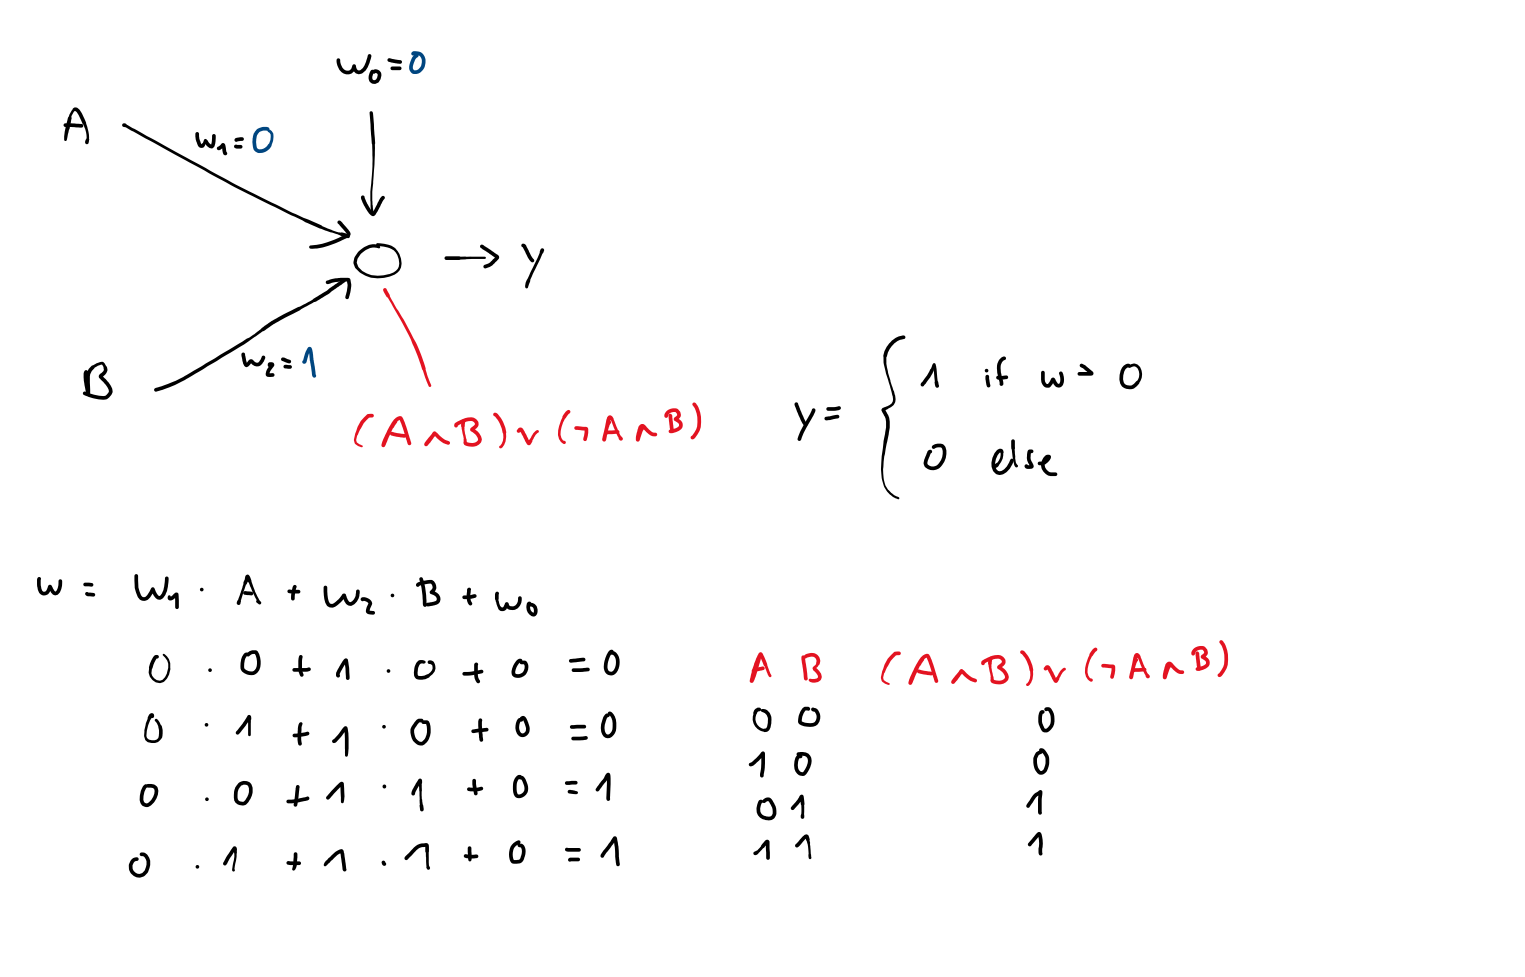 w₀=0
A
w₁=0
→ y
B
w₂=1
(A∧B)∨(¬A∧B)
y= { 1 if w > 0
0 else
w = w₁ · A + w₂ · B + w₀
0 · 0 + 1 · 0 + 0 = 0
0 · 1 + 1 · 0 + 0 = 0
0 · 0 + 1 · 1 + 0 = 1
0 · 1 + 1 · 1 + 0 = 1
A B (A∧B)∨(¬A∧B)
0 0 0
1 0 0
0 1 1
1 1 1